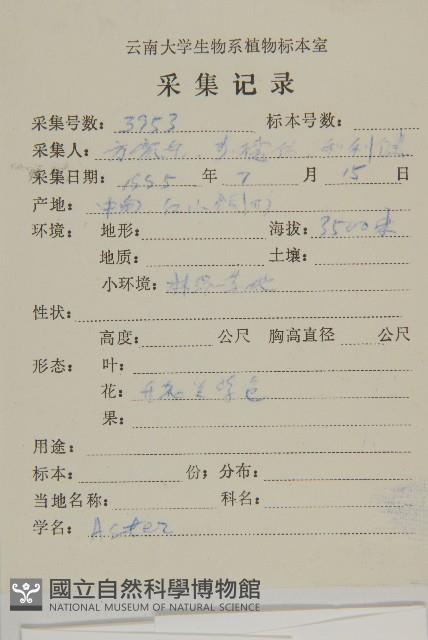 云南大学生物系植物标本室
采集记录
采集号数: 3953 标本号数:
采集人: 利
采集日期: 1995 年 7 月 15 日
产地: 中甸
环境: 地形: 海拔: 3500米
地质: 土壤:
小环境: 林 草地
性状:
高度: 公尺 胸高直径 公尺
形态: 叶:
花: 色
果:
用途:
标本: 份; 分布:
当地名称: 科名:
学名: Aster
國立自然科學博物館
NATIONAL MUSEUM OF NATURAL SCIENCE